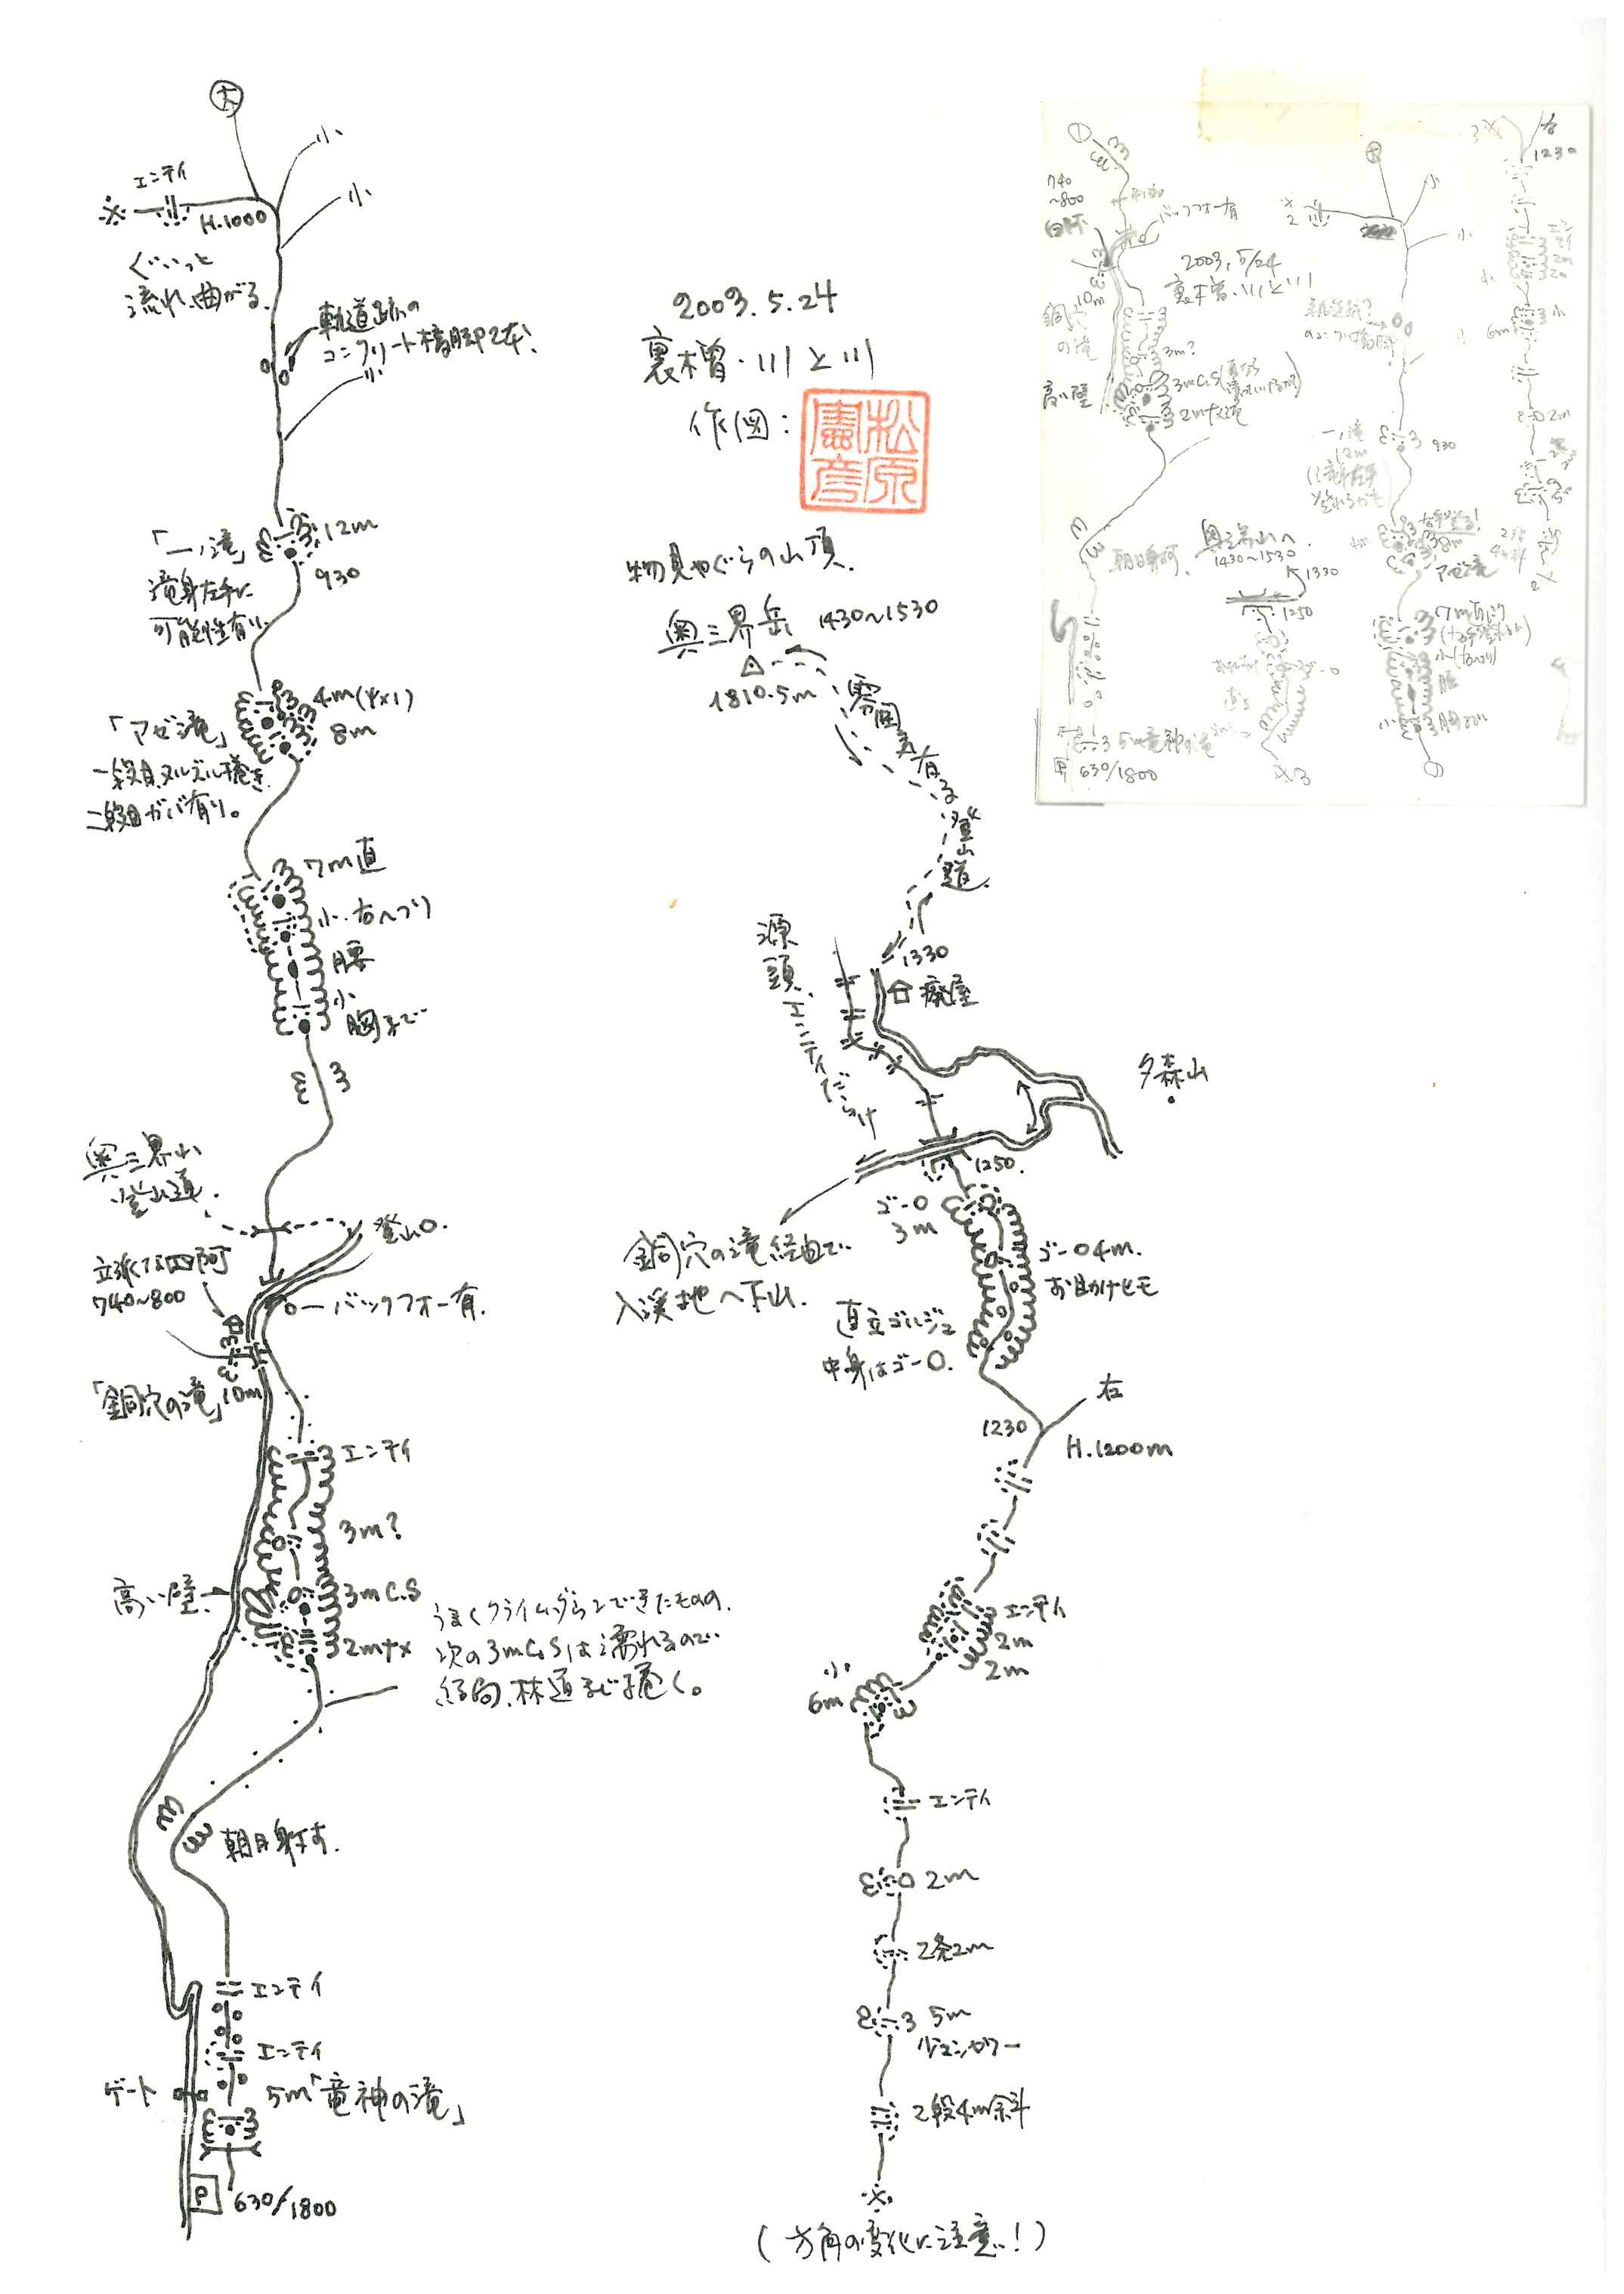 大
小
エンテイ
小
H.1000
ぐいっと
流れ曲がる。
軌道跡の
コンクリート橋脚2本、
小
「一ノ滝」
12m
930
滝身左手に
可能性有り
「アゼ滝」
4m(4×1)
8m
一段目ヌルヌル捲き
二段目ガバ有り。
7m直
小、右へつり
腰
小
胸まで
奥三界山
登山道.
登山口.
立派な四阿
740~800
バックフォー有.
「銅穴の滝」10m
エンテイ
3m?
高い壁、
3m C.S
2m+x
うまくクライムダウンできたものの、
次の3mC.Sは濡れるので
結局、林道まで捲く。
朝日射す.
エンテイ
エンテイ
ゲート
5m「竜神の滝」
P
630/1800
2003.5.24
裏木曽・川と川
作図:
松原
憲彦
物見やぐらの山頂.
奥三界岳 1430~1530
1810.5m
雰囲気有る登山道.
源頭、エンテイだらけ
1330
廃屋
夕森山
1250.
ゴーロ
3m
銅穴の滝経由で
入渓地へ下山.
ゴーロ4m.
お助けヒモ
直立ゴルジュ
中身はゴーロ.
右
1230
H.1200m
エンテイ
2m
2m
小
6m
エンテイ
2m
2条2m
5m
シャワー
2段4m斜
(方角の変化に注意!)
740
~800
バックフォー有
2003.5/24
裏木曽・川と川
10m
銅穴
の滝
3m?
高い壁
3mC.S
2m+x
朝日射す
奥三界山へ
1430~1530
1330
1250
5m竜神の滝
630/1800
大
小
小
一ノ滝
12m
930
8m
アゼ滝
7m直
腰
胸まで
右
1230
エンテイ
2m
2m
小
6m
2m